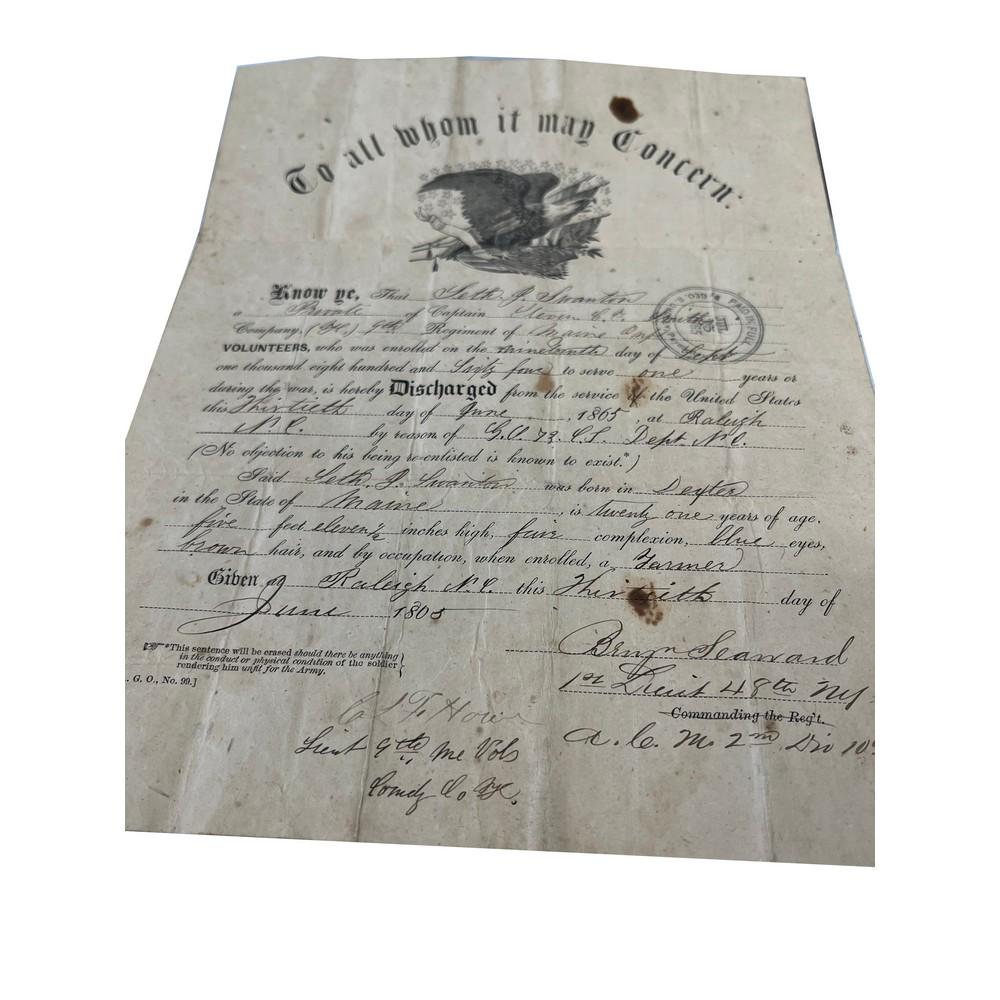 To all whom it may Concern:
Know ye, That Seth J. Swanton
a Private of Captain C. C.
Company, (K.) 9th Regiment of Maine
VOLUNTEERS, who was enrolled on the nineteenth day of Sept
one thousand eight hundred and Sixty four to serve one years or
during the war, is hereby Discharged from the service of the United States
this Thirtieth day of June, 1865, at Raleigh
N. C. by reason of G.O. 73. C.S. Dept N.C.
(No objection to his being re-enlisted is known to exist.*)
Said Seth J. Swanton was born in Dexter
in the State of Maine, is twenty one years of age,
five feet eleven ½ inches high, fair complexion, blue eyes,
brown hair, and by occupation, when enrolled, a Farmer
Given at Raleigh N.C. this Thirtieth day of
June 1865
PAID IN FULL
☞ *This sentence will be erased should there be anything
in the conduct or physical condition of the soldier
rendering him unfit for the Army.
. G. O., No. 99.]
Benjn Seaward
1st Lieut 48th NY
Commanding the Reg't.
A. C. M. 2nd Div 10
Lieut 9th Me Vols
Comdg Co K.